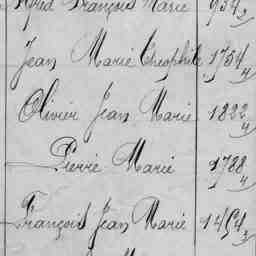 Alfred François Marie 934/2
Jean Marie Théophile 1754/4
Olivier Jean Marie 1822/4
Pierre Marie 1788/4
François Jean Marie 1454/3